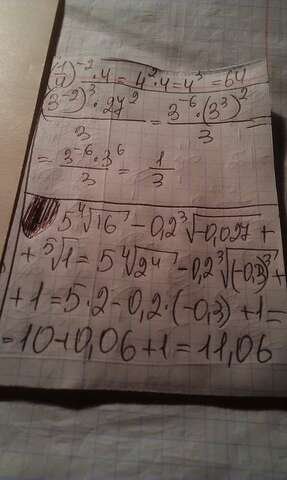 (1/4)^-2 · 4 = 4² · 4 = 4³ = 64
(3^-2)³ · 27² / 3 = 3^-6 · (3³)² / 3
= 3^-6 · 3^6 / 3 = 1/3
5 ⁴√16 - 0,2 ³√-0,027 +
+ ⁵√1 = 5 ⁴√2⁴ - 0,2 ³√(-0,3)³ +
+ 1 = 5 · 2 - 0,2 · (-0,3) + 1 =
= 10 + 0,06 + 1 = 11,06